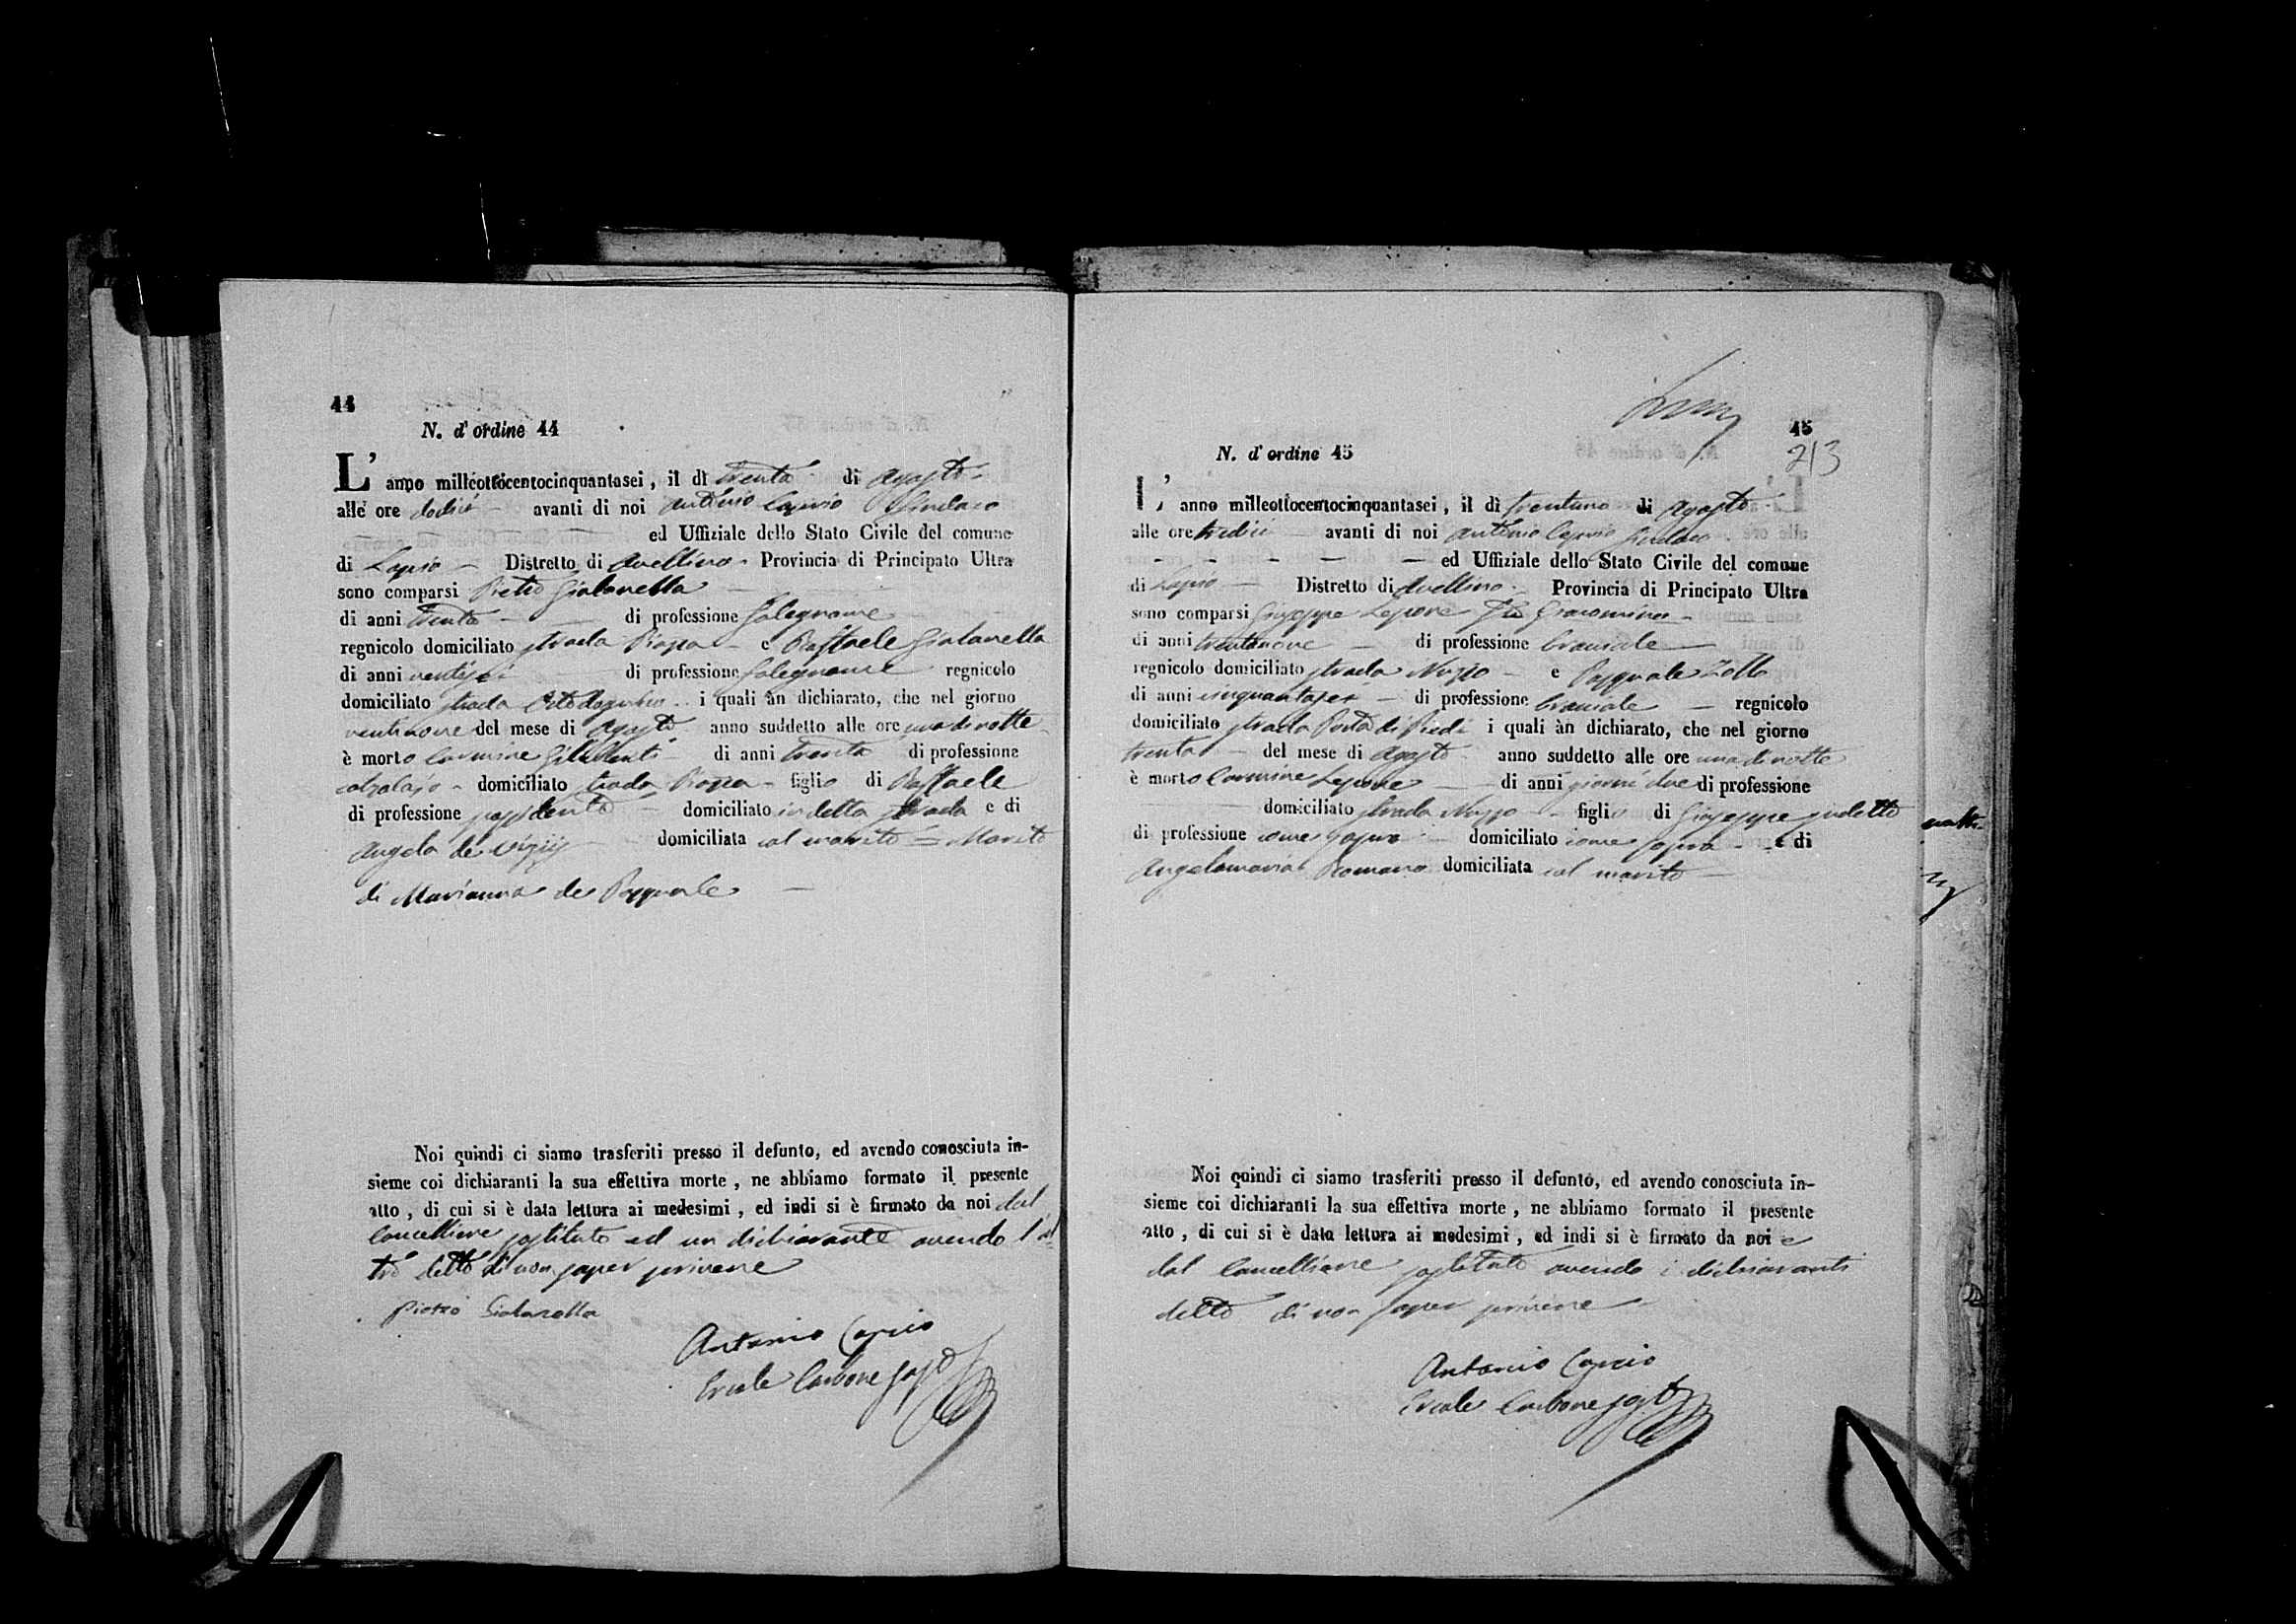 44
N. d'ordine 44
L'anno milleottocentocinquantasei, il dì trenta di agosto
alle ore dodici avanti di noi Antonio Caprio Sindaco
ed Uffiziale dello Stato Civile del comune
di Lapio Distretto di Avellino Provincia di Principato Ultra
sono comparsi Pietro Gialanella
di anni trenta di professione falegname
regnicolo domiciliato strada Piazza e Raffaele Gialanella
di anni ventisei di professione falegname regnicolo
domiciliato strada i quali àn dichiarato, che nel giorno
ventinove del mese di agosto anno suddetto alle ore una di notte
è morto Carmine di anni trenta di professione
calzolajo domiciliato strada Piazza figlio di Raffaele
di professione possidente domiciliato in detta strada e di
Angela de domiciliata col marito = Marito
di Marianna de Pasquale
Noi quindi ci siamo trasferiti presso il defunto, ed avendo conosciuta in-
sieme coi dichiaranti la sua effettiva morte, ne abbiamo formato il presente
atto, di cui si è data lettura ai medesimi, ed indi si è firmato da noi dal
Cancelliere sostituto ed un dichiarante avendo l'al
tro detto di non saper scrivere
Pietro Gialanella
Antonio Caprio
Ercole Carbone sost
45
213
N. d'ordine 45
L'anno milleottocentocinquantasei, il dì trentuno di agosto
alle ore tredici avanti di noi Antonio Caprio Sindaco
ed Uffiziale dello Stato Civile del comune
di Lapio Distretto di Avellino Provincia di Principato Ultra
sono comparsi Giuseppe Lepore Giacomino
di anni trentanove di professione bracciale
regnicolo domiciliato strada Nuzzo e Pasquale Zollo
di anni cinquantasei di professione bracciale regnicolo
domiciliato strada Porta di Piedi i quali àn dichiarato, che nel giorno
trenta del mese di agosto anno suddetto alle ore una di notte
è morto Carmine Lepore di anni giorni due di professione
domiciliato strada Nuzzo figlio di Giuseppe sudetto
di professione come sopra domiciliato come sopra e di
Angelamaria Romano domiciliata col marito
Noi quindi ci siamo trasferiti presso il defunto, ed avendo conosciuta in-
sieme coi dichiaranti la sua effettiva morte, ne abbiamo formato il presente
atto, di cui si è data lettura ai medesimi, ed indi si è firmato da noi e
dal Cancelliere sostituto avendo i dichiaranti
detto di non saper scrivere
Antonio Caprio
Ercole Carbone sost